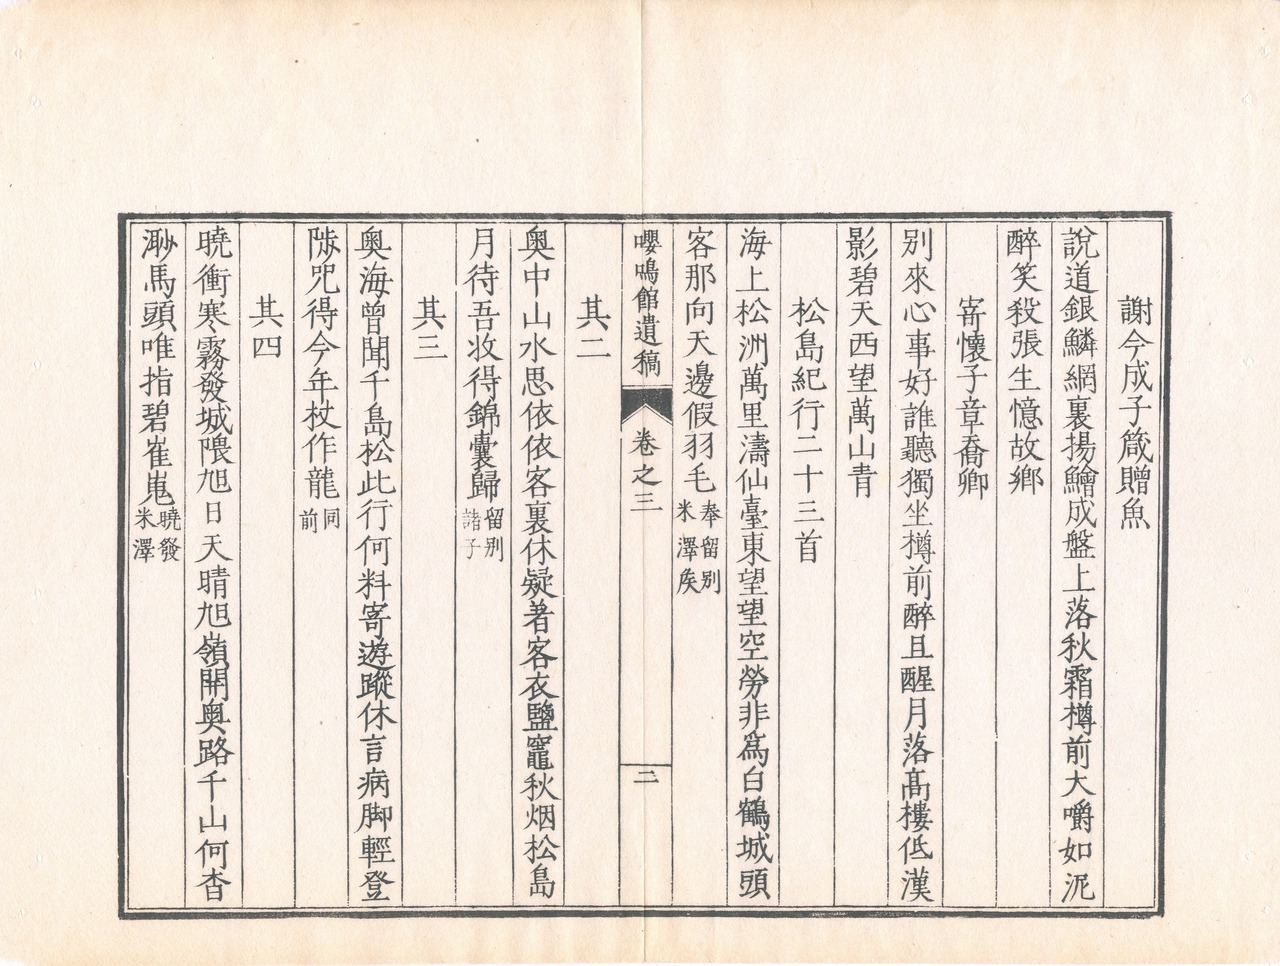 謝今成子箴贈魚
説道銀鱗網裏揚鱠成盤上落秋霜樽前大嚼如泥
醉笑殺張生憶故鄉
寄懷子章喬卿
別來心事好誰聽獨坐樽前醉且醒月落高樓低漢
影碧天西望萬山青
松島紀行二十三首
海上松洲萬里濤仙臺東望望空勞非為白鶴城頭
客那向天邊假羽毛奉留別
米澤侯
嚶鳴館遺稿 卷之三 二
其二
奧中山水思依依客裏休疑著客衣鹽竈秋烟松島
月待吾妝得錦囊歸留別
諸子
其三
奧海曾聞千島松此行何料寄遊蹤休言病脚輕登
陟咒得今年杖作龍同
前
其四
曉衝寒霧發城隈旭日天晴旭嶺開奧路千山何杳
渺馬頭唯指碧崔嵬曉發
米澤